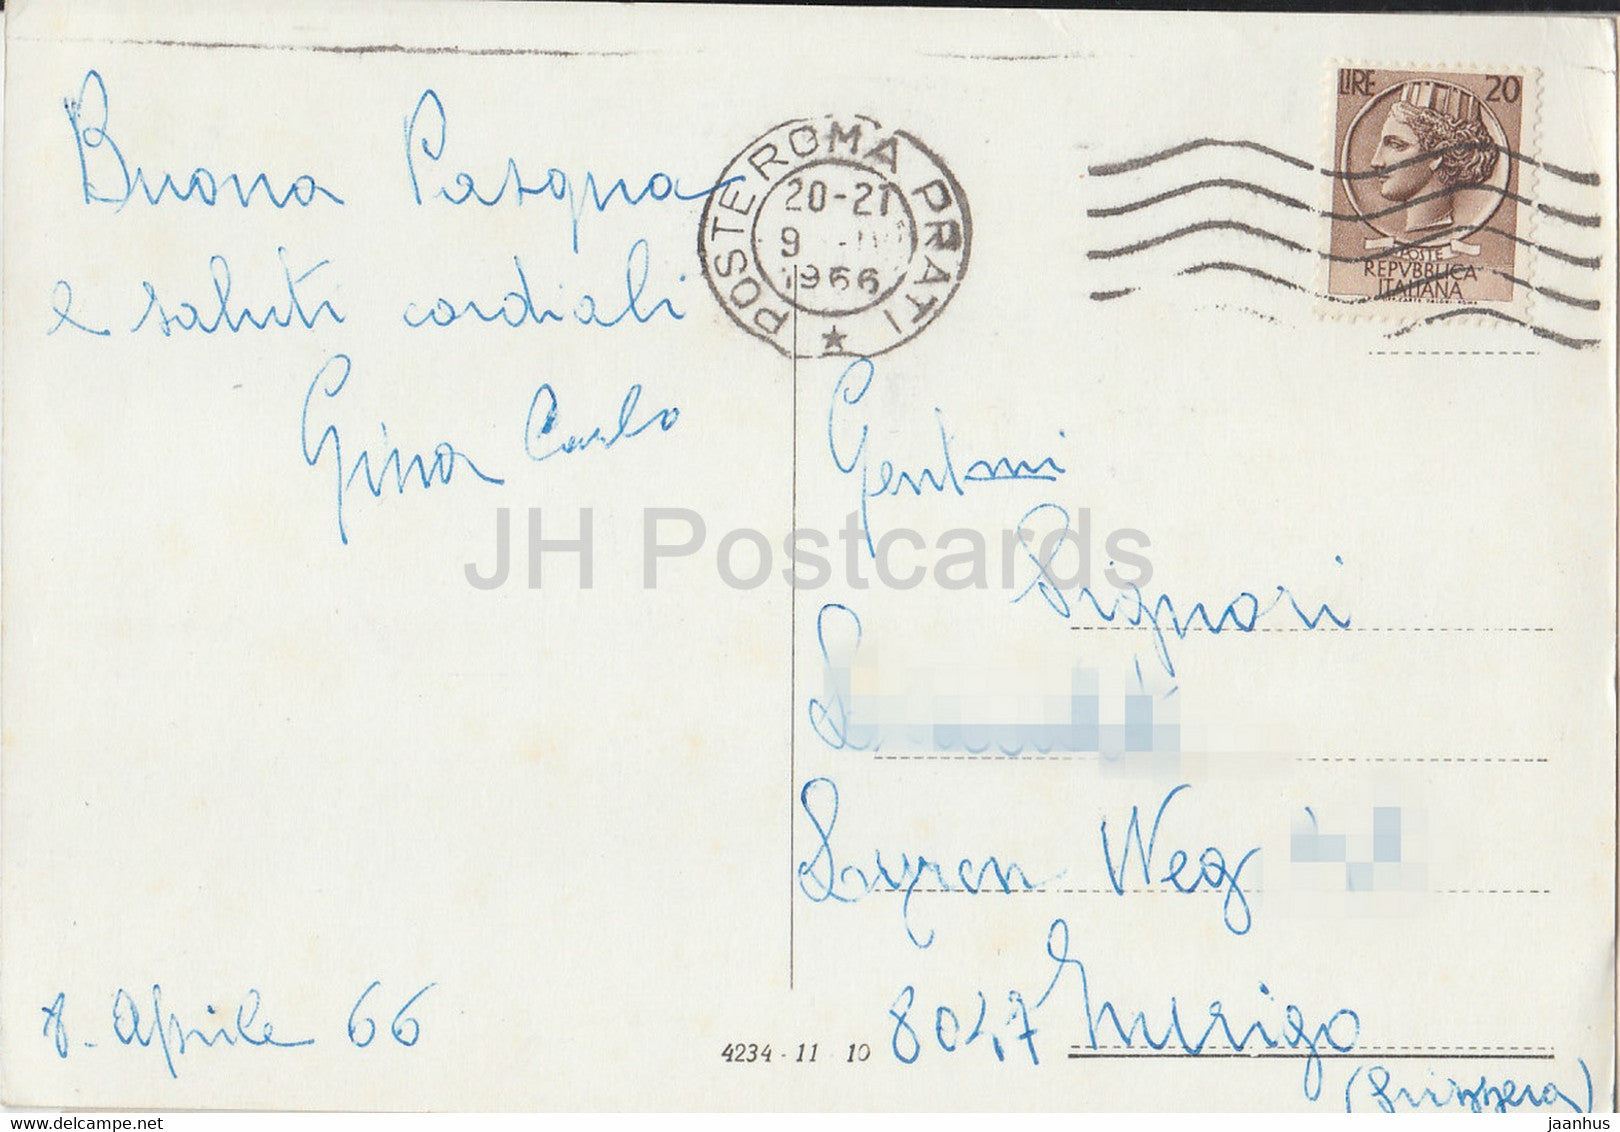 Buona Pasqua
e saluti cordiali
Gina Carlo
8. Aprile 66
POSTE ROMA PRATI
20-21
9
1966
LIRE 20
POSTE
REPVBBLICA
ITALIANA
Gent.mi
Signori
Weg
8047 Zurigo
(Svizzera)
4234 - 11 - 10
JH Postcards
jaanhus